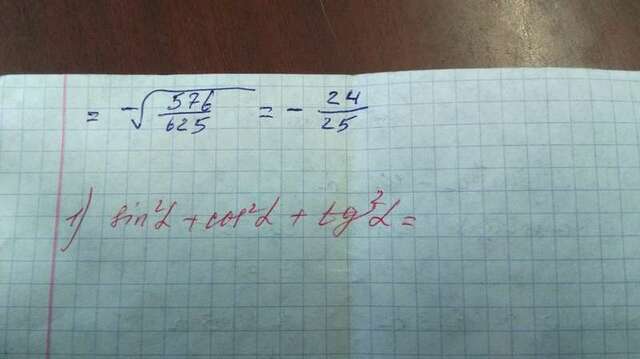 = -√576/625 = - 24/25
1) sin²α + cos²α + tg²α =